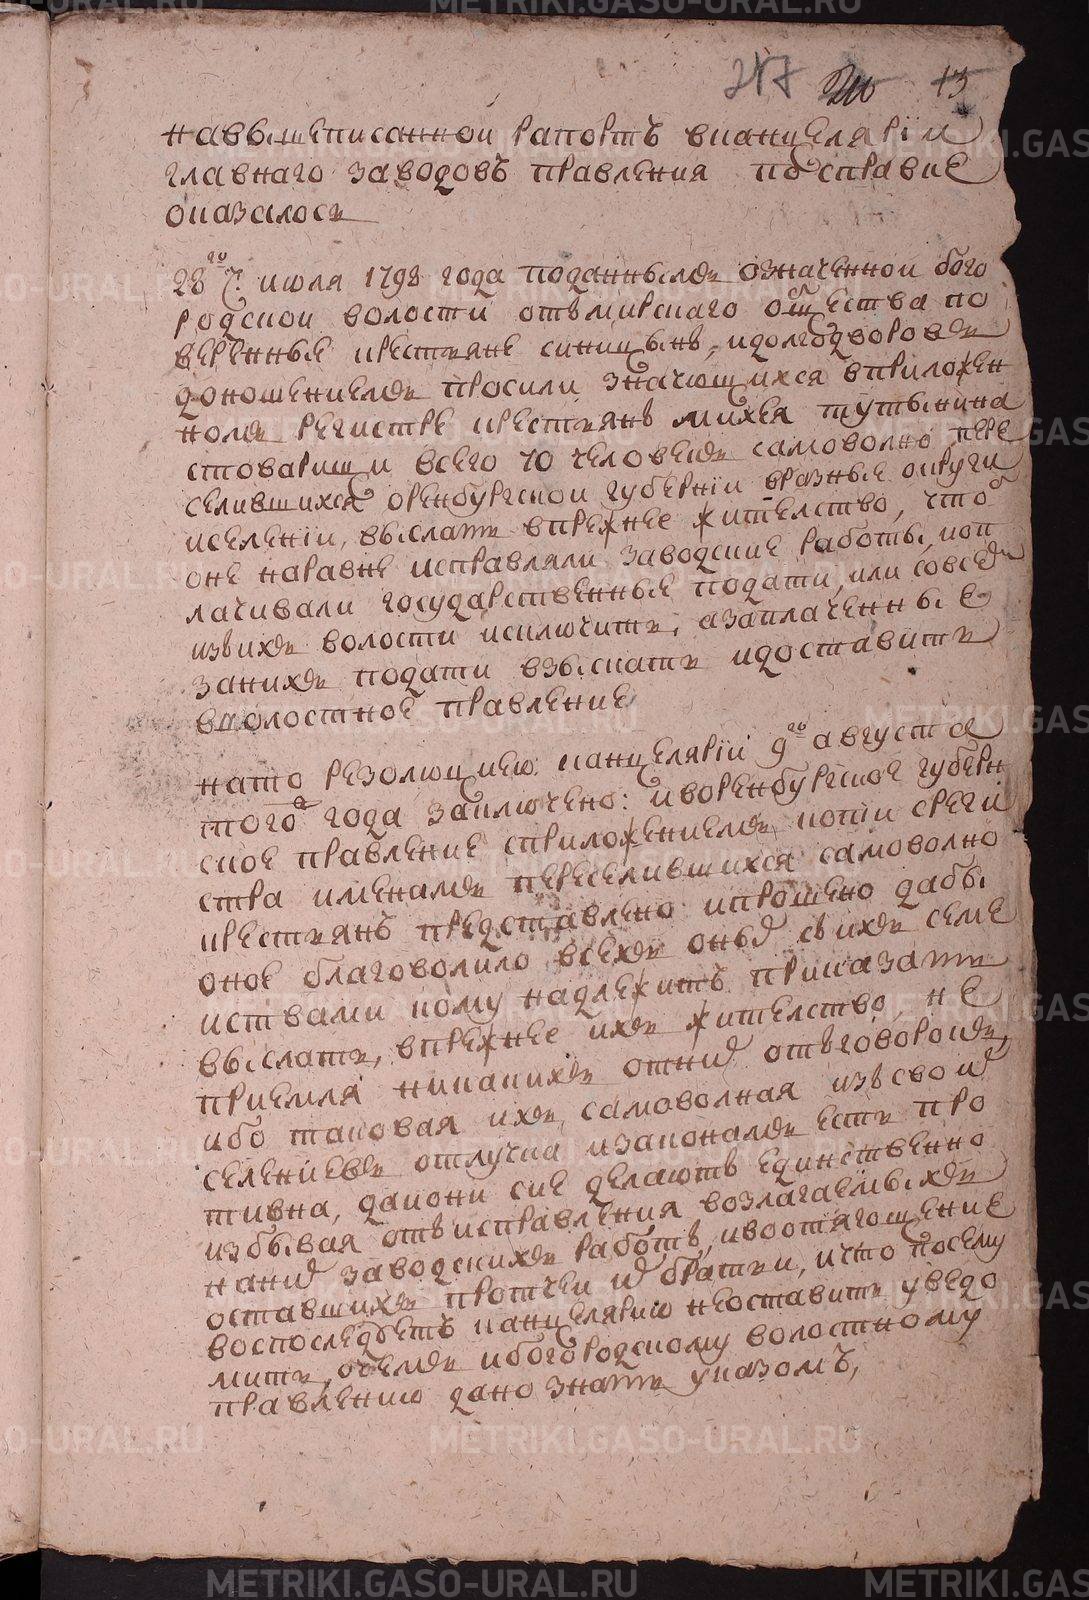 METRIKI.GASO-URAL.RU
247 210 13
навышеписанной рапортъ вканцелярїи
главнаго заводовъ правления посправке
оказалось
28го ч. июля 1798 года поданнымъ означенной бого
родской волости отъмирскаго общества по
веренные крестьяне синицынъ, идолгодворовъ
доношениемъ просили, значющихся вприложен
номъ регистре крестьянъ михея тутынина
стоварищи всего 70 человекъ самоволно пере
селившихся оренбургской губернїи вразные округи
иселенїи, выслать впрежнее жителство, чтоб
оне наравне исправляли заводские работы, иоп
лачивали государственные подати, или совсемъ
изъихъ волости исключить, азаплаченные
занихъ подати взыскать идоставить
вволостное правление
нато резолюциею канцелярїи 9го августа
того года заключено: иворенбургское губерн
ское правление сприложениемъ копїи среги
стра именамъ переселившихся самоволно
крестьянъ представлено ипрошено дабы
оное благоволило всехъ оных съихъ семе
иствами кому надлежитъ приказать
выслать, впрежнее ихъ жителство, не
приемля никакихъ отних отъговорокъ,
ибо таковая ихъ самоволная изъсвоих
селениевъ отлучка изаконамъ есть про
тивна, дакони сие делаютъ единственно
избывая отъисправления возлагаемыхъ
наних заводскихъ работъ, ивоотягощение
оставшихъ протчеи их братьи, ичто посему
воспоследуетъ канцелярию неоставить уведо
мить, очемъ ибогородскому волостному
правлению дано знать указомъ,